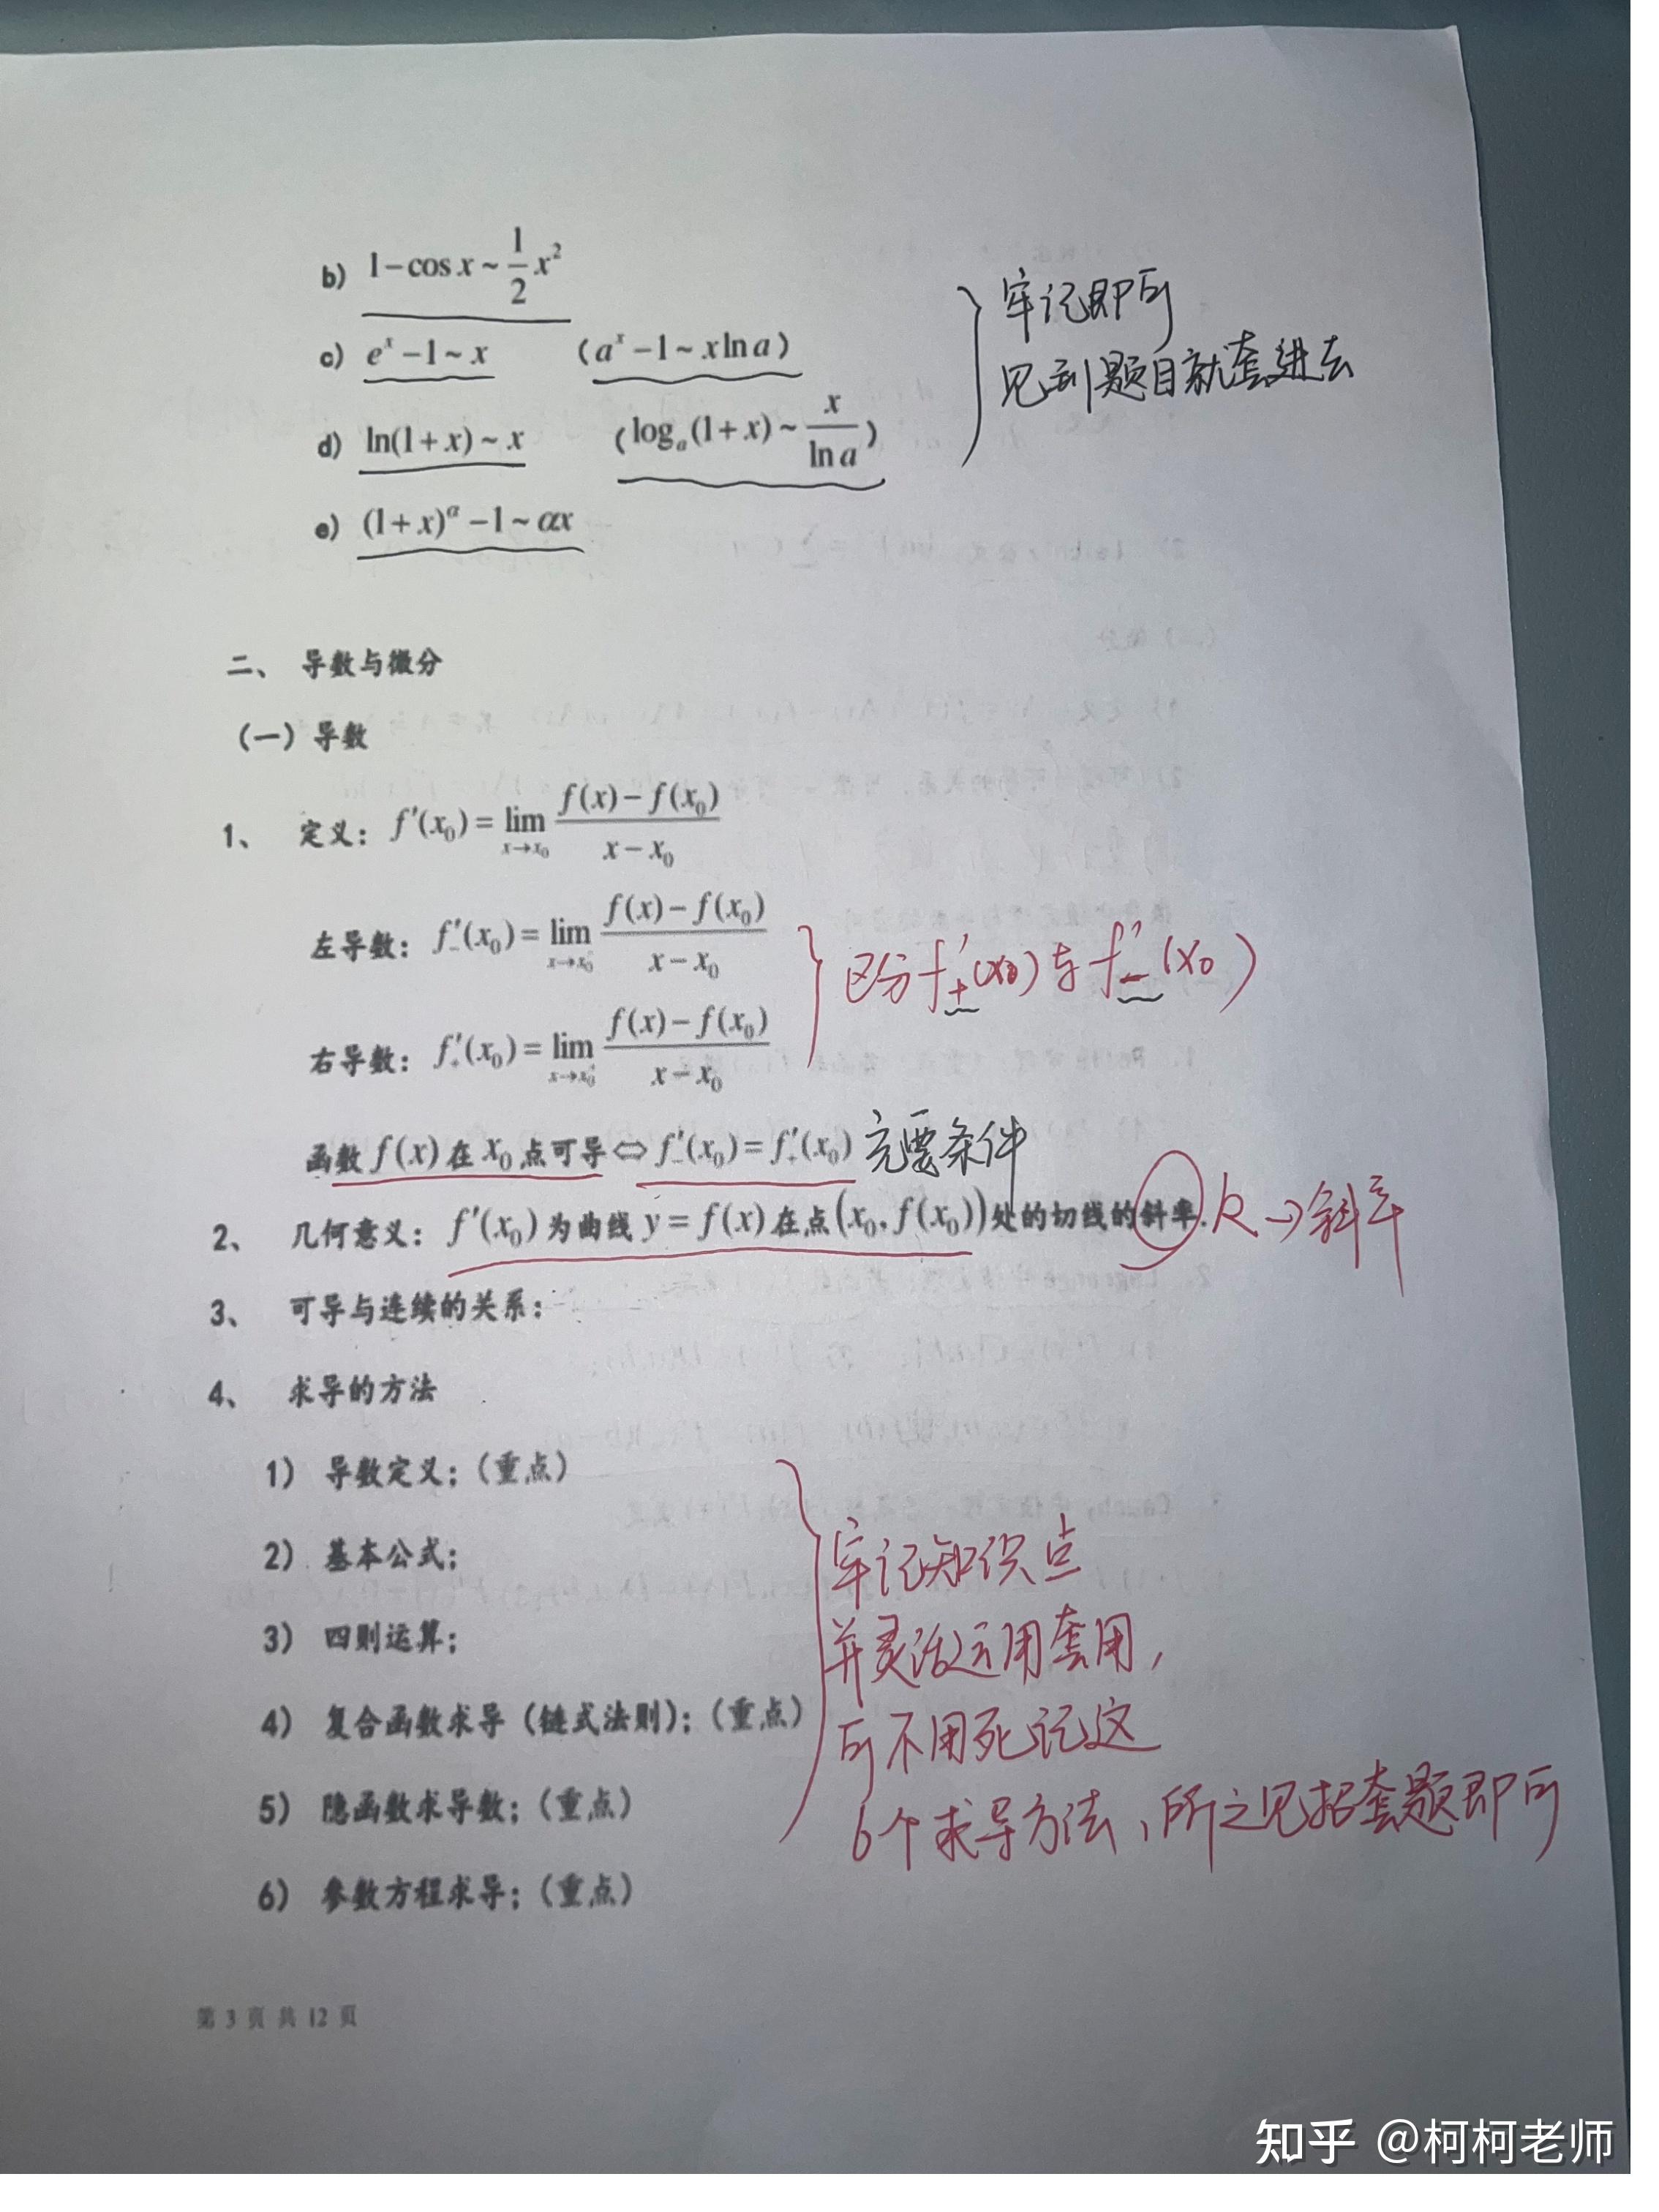 b) 1-cos x ~ 1/2 x²
牢记即可
c) eˣ -1 ~ x (aˣ -1 ~ x ln a)
见到题目就套进去
d) ln(1+x) ~ x (logₐ(1+x) ~ x/ln a)
e) (1+x)^α -1 ~ αx
二、 导数与微分
（一）导数
1、 定义：f′(x₀) = lim x→x₀ (f(x) - f(x₀))/(x - x₀)
左导数：f′₋(x₀) = lim x→x₀⁻ (f(x) - f(x₀))/(x - x₀)
区分f′₊(x₀)与f′₋(x₀)
右导数：f′₊(x₀) = lim x→x₀⁺ (f(x) - f(x₀))/(x - x₀)
函数 f(x) 在 x₀ 点可导⇔ f′₋(x₀) = f′₊(x₀) 充要条件
2、 几何意义：f′(x₀) 为曲线 y = f(x) 在点 (x₀, f(x₀)) 处的切线的斜率. k→斜率
3、 可导与连续的关系：
4、 求导的方法
1) 导数定义；（重点）
2) 基本公式；
3) 四则运算；
4) 复合函数求导（链式法则）；（重点）
5) 隐函数求导数；（重点）
6) 参数方程求导；（重点）
牢记知识点
并灵活运用套用，
可不用死记这
6个求导方法，所之见招套题即可
第 3 頁 共 12 頁
知乎 @柯柯老师